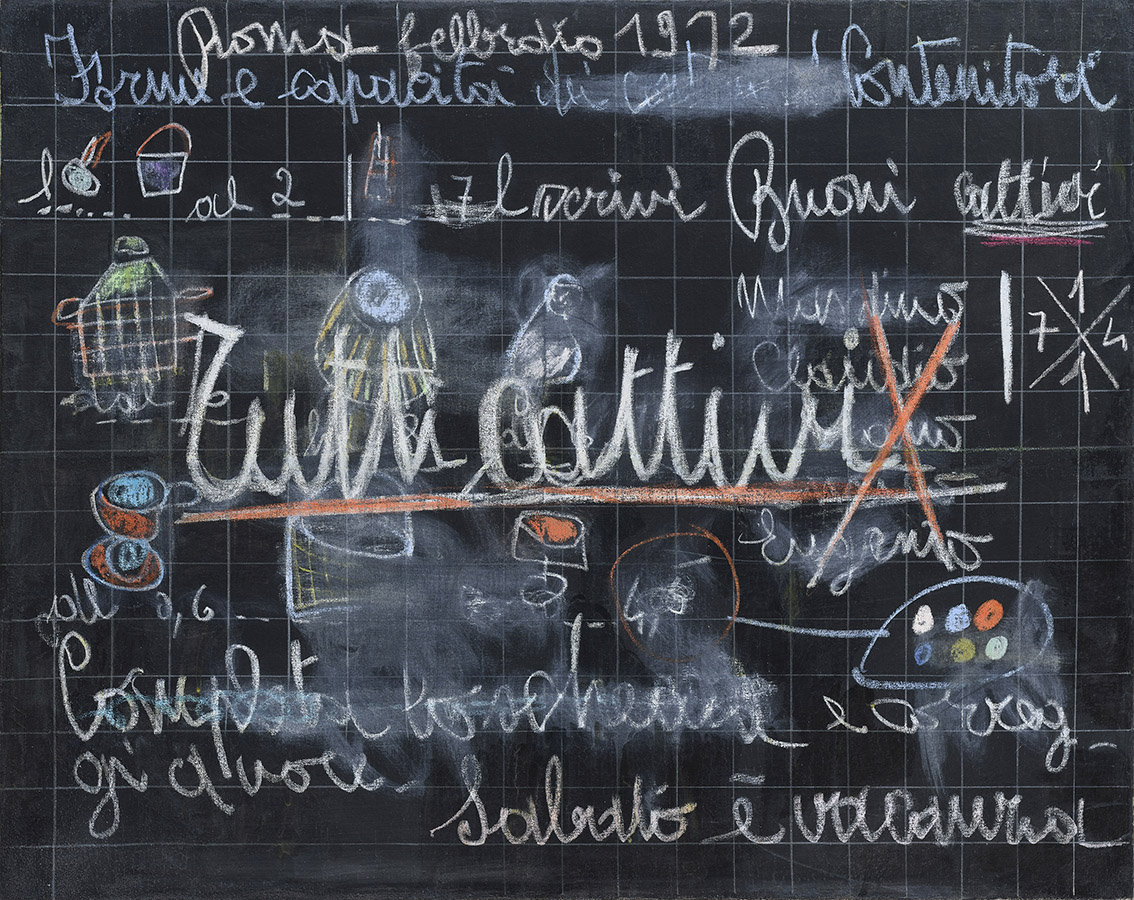 Roma febbraio 1972
Forme e capacità di Contenitori
ad 2 17 l scrivi Buoni cattivi
Massimo
1
7 4
1
Claudio
Tutti cattivi
Eugenio
all 0,6
Completa e correg-
gi a voce
Sabato è vacanza